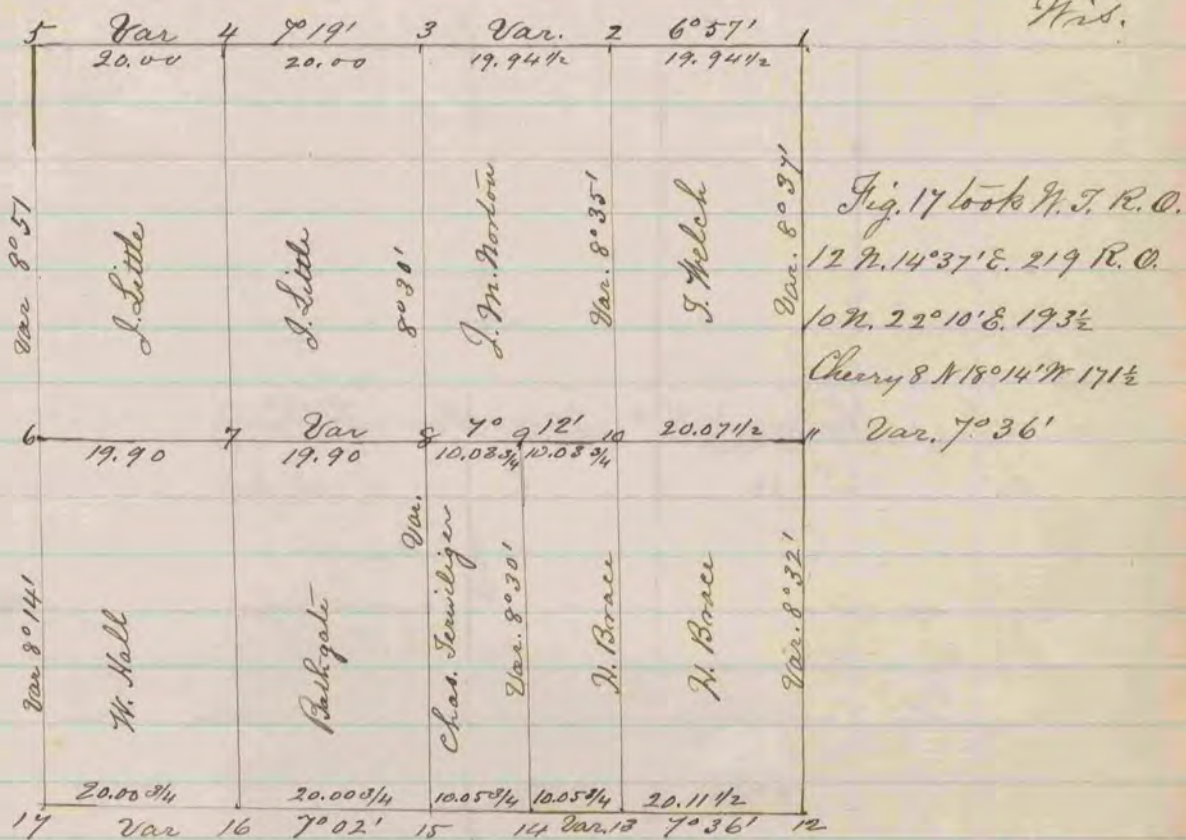 Wis.
5 Var 4 7°19' 3 Var. 2 6°57' 1
20.00 20.00 19.94 1/2 19.94 1/2
Var 8°51
J. Little
J. Little
8°30'
J. M. Norton
Var. 8°35'
J. Welch
Var. 8°37'
Fig. 17 took W. T. R. O.
12 N. 14°37' E. 219 R. O.
10 N. 22°10' E. 193 1/2
Cherry 8 N 18°14' W 171 1/2
Var. 7°36'
6 7 Var 8 7° 9 12' 10 20.07 1/2 11
19.90 19.90 10.08 3/4 10.08 3/4
Var 8°14'
W. Hall
Bathgate
Var.
Chas. Terwiliger
Var. 8°30'
H. Brace
H. Brace
Var. 8°32'
20.00 3/4 20.00 3/4 10.05 3/4 10.05 3/4 20.11 1/2
17 Var 16 7°02' 15 14 Var. 13 7°36' 12